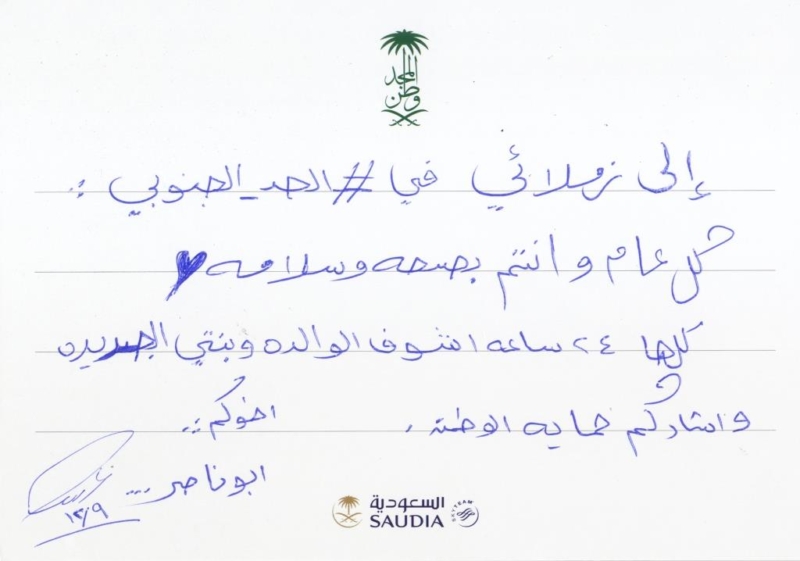 المجد
وطن
إلى زملائي في #الحد_الجنوبي :
كل عام و انتم بصحه وسلامه
كلها ٢٤ ساعه اشوف الوالده وبنتي الجديده
و اشارككم حمايه الوطن .
اخوكم ..
ابو ناصر ...
١٢/٩
السعودية
SAUDIA
SKYTEAM